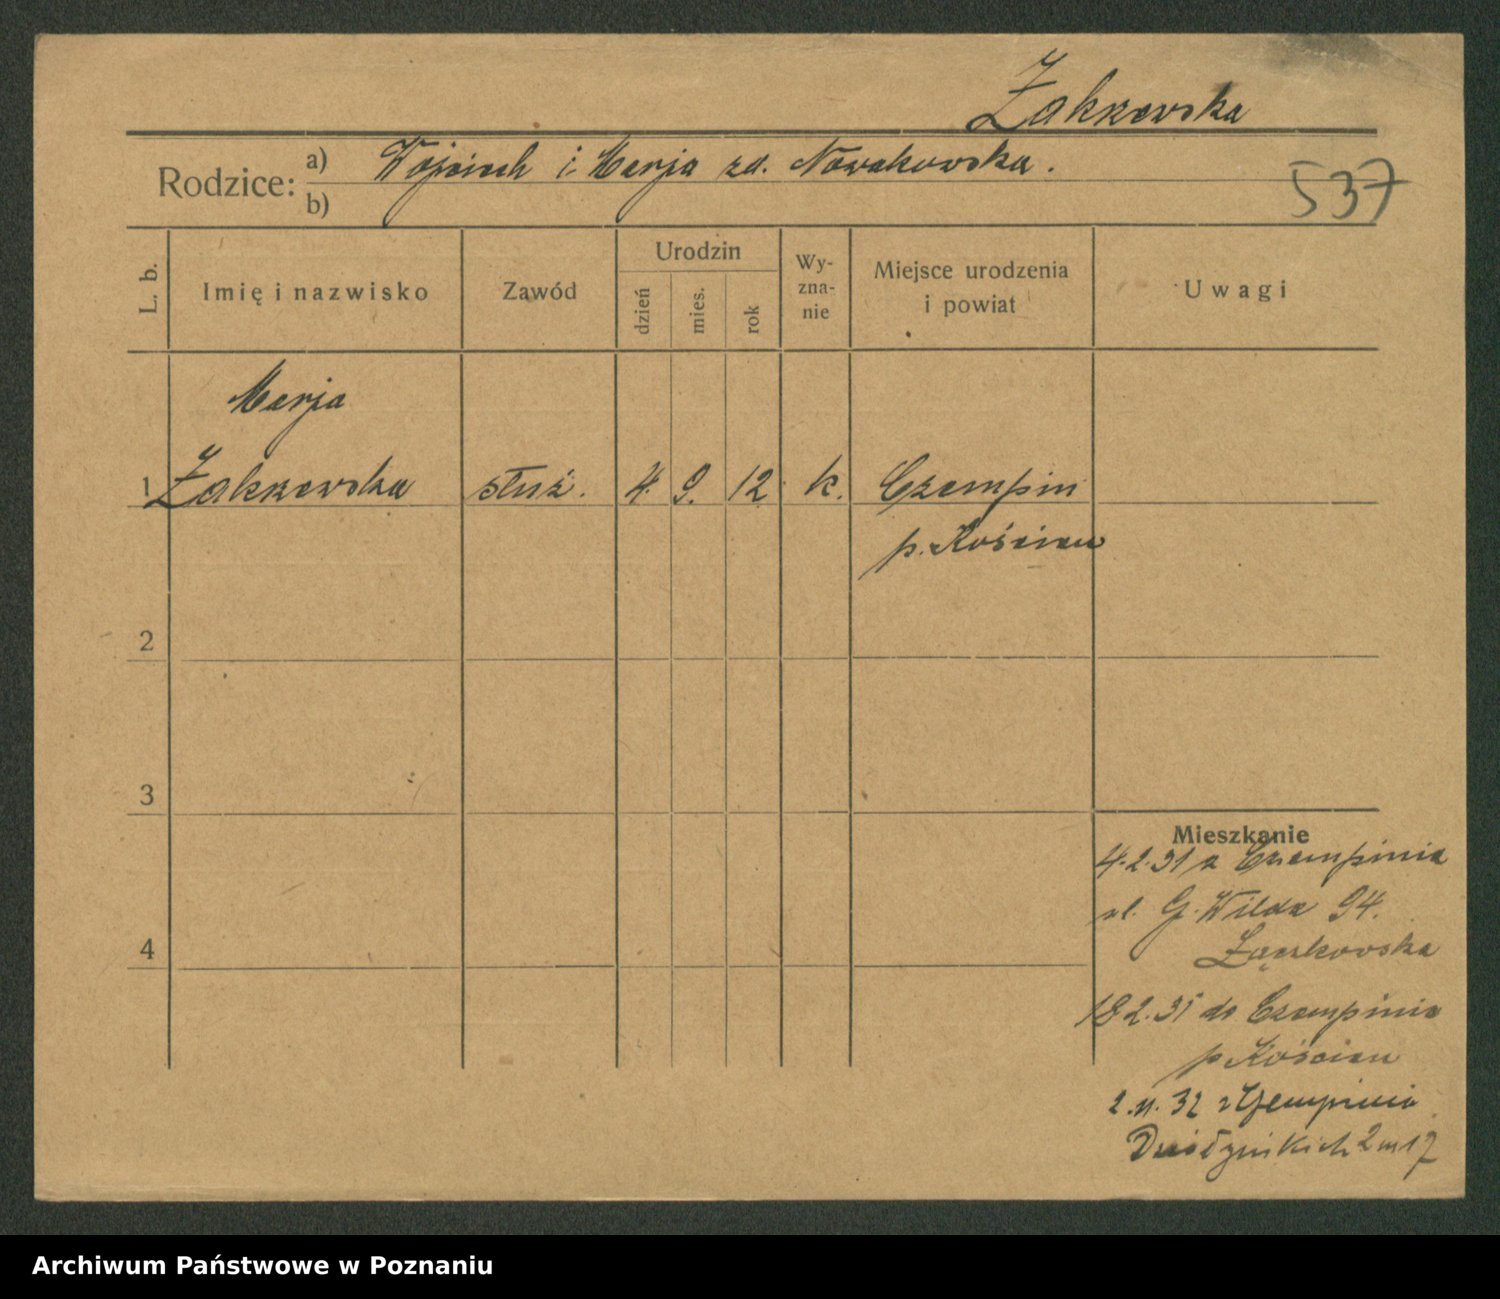 Zakrzewska
Rodzice: a) Wojciech i Marja zd. Nowakowska.
b)
537
L. b.
Imię i nazwisko
Zawód
Urodzin
dzień
mies.
rok
Wy-
zna-
nie
Miejsce urodzenia
i powiat
Uwagi
Marja
1 Zakrzewska służ. 4. 9. 12 k. Czempin
p. Kościan
2
3
4
Mieszkanie
4.2.31 z Czempinia
ul. G. Wilda 94.
18.2.31 do Czempinia
p Kościan
2.11.32 z Czempinia
Działyńskich 2 m 17
Archiwum Państwowe w Poznaniu